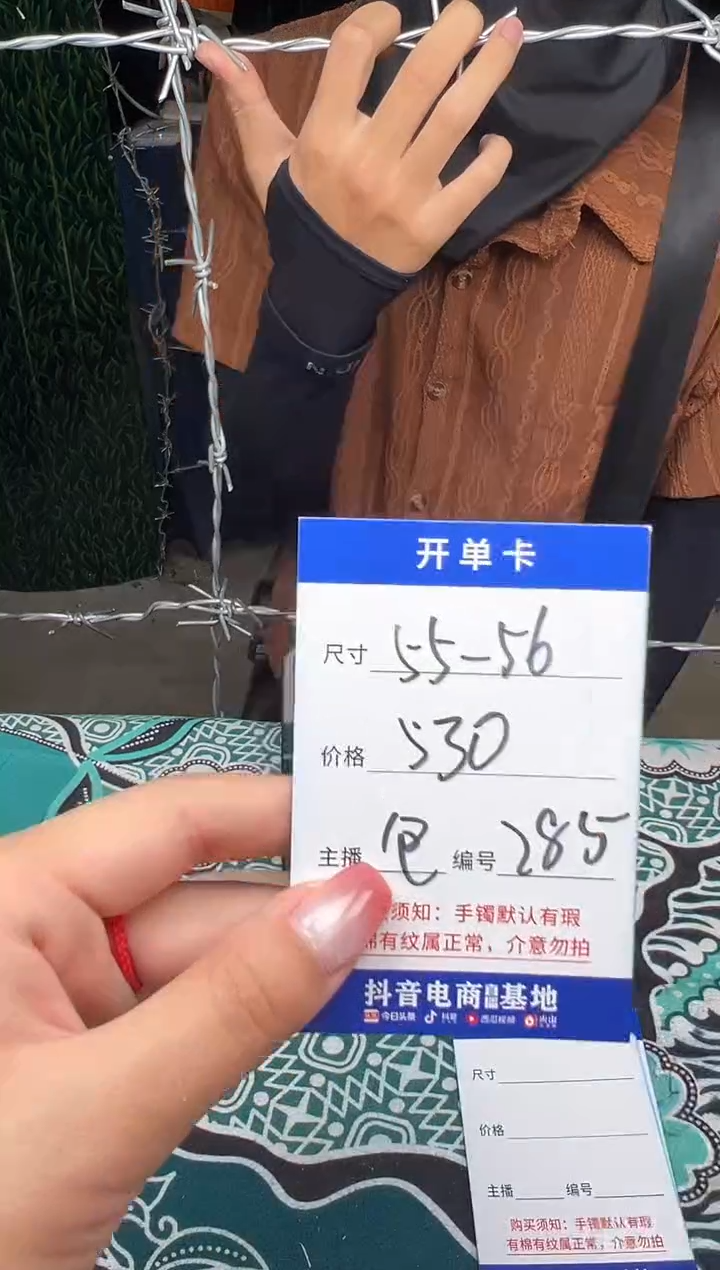 开单卡
尺寸 55-56
价格 530
主播 包 编号 285
须知：手镯默认有瑕
棉有纹属正常，介意勿拍
抖音电商直播基地
今日头条 抖音 西瓜视频 火山
尺寸
价格
主播 编号
购买须知：手镯默认有瑕
有棉有纹属正常，介意勿拍